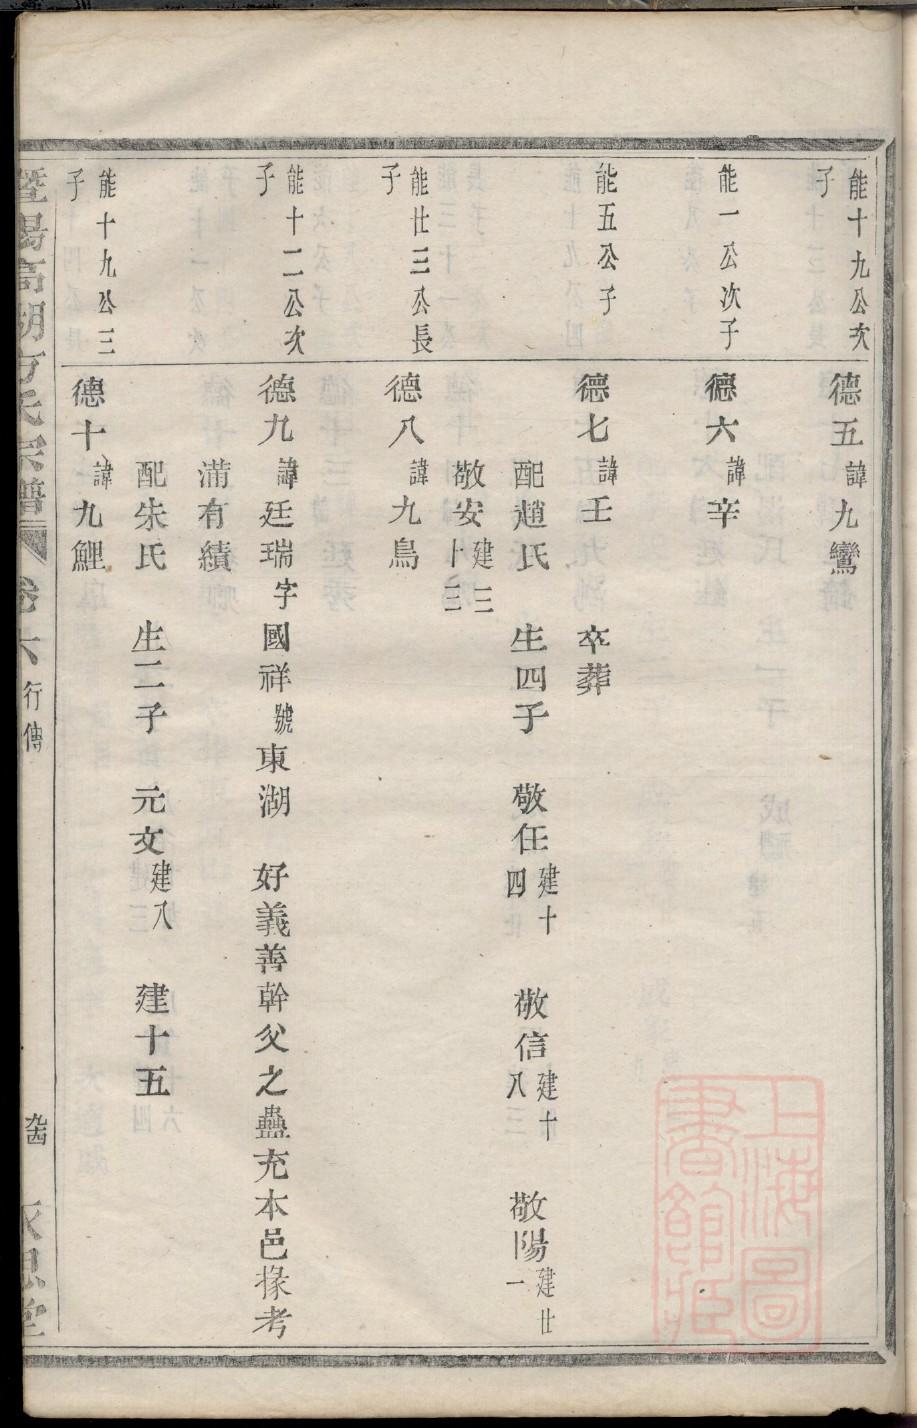 能十九公次子
德五諱九鸞
能一公次子
德六諱辛
能五公子
德七諱壬 卒葬
配趙氏 生四子 敬任建十四 敬信建十八 敬陽建廿一
敬安建三十三
能廿三公長子
德八諱九鳥
能十二公次子
德九諱廷瑞字國祥號東湖 好義善幹父之蠱充本邑掾考
滿有績
配朱氏 生二子 元文建八 建十五
能十九公三子
德十諱九鯉
暨陽高湖方氏宗譜 卷六 行傳
上海圖書館藏